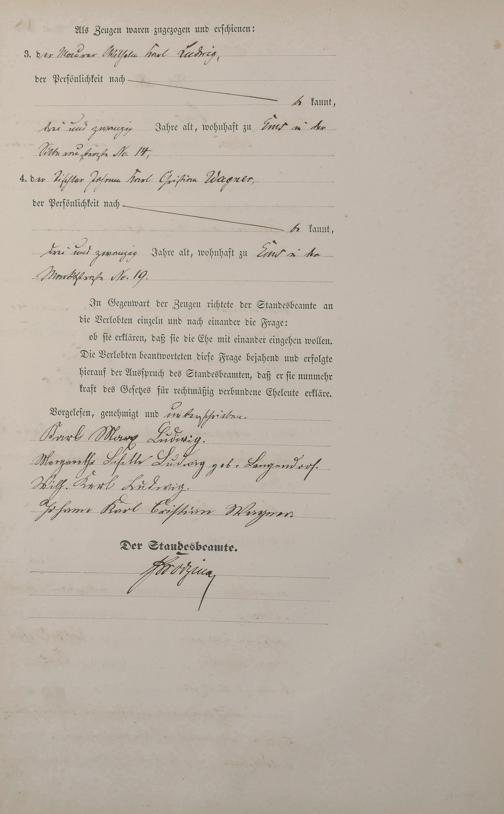 Als Zeugen waren zugezogen und erschienen:
3. der Maurer Wilhelm Karl Ludwig,
der Persönlichkeit nach
be kannt,
drei und zwanzig Jahre alt, wohnhaft zu Ems in der
No. 14,
4. der Tischler Johann Karl Christian Wagner,
der Persönlichkeit nach
be kannt,
drei und zwanzig Jahre alt, wohnhaft zu Ems in der
Marktstraße No. 19.
In Gegenwart der Zeugen richtete der Standesbeamte an
die Verlobten einzeln und nach einander die Frage:
ob sie erklären, daß sie die Ehe mit einander eingehen wollen.
Die Verlobten beantworteten diese Frage bejahend und erfolgte
hierauf der Ausspruch des Standesbeamten, daß er sie nunmehr
kraft des Gesetzes für rechtmäßig verbundene Eheleute erkläre.
Vorgelesen, genehmigt und unterschrieben.
Karl Max Ludwig.
Margarethe Ludwig geb. Langendorf.
Wilh. Karl Ludwig.
Johann Karl Cristian Wagner
Der Standesbeamte.